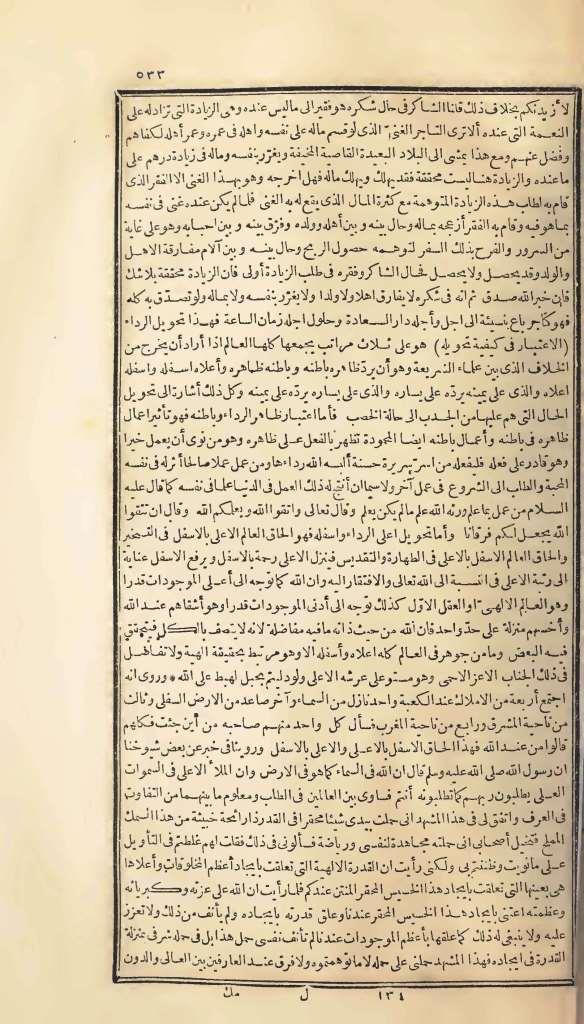 ٥٣٣
لأزيدنكم بخلاف ذلك فانا الشاكر فى حال شكره هو فقير الى ما ليس عنده وهى الزيادة التى تزاد له على
النعمة التى عنده ألا ترى التاجر الغنى الذى لو قسم ماله على نفسه وأهله فى عمره وعمر أهله لكفاهم
وفضل عنهم ومع هذا يمشى الى البلاد البعيدة القاصية المخيفة ويغرر بنفسه وماله فى زيادة درهم على
ما عنده والزيادة هنا ليست محققة فقد يهلك ويهلك ماله فهل اخرجه وهو بهذا الغنى الا الفقر الذى
قام به لطلب هذه الزيادة المتوهمة مع كثرة المال الذى يقع له به الغنى فلما لم يكن عنده غنى فى نفسه
بما هو فيه وقام به الفقر أزعجه بماله وحال بينه وبين أهله وولده وفرق بينه وبين احبابه وهو على غاية
من السرور والفرح بذلك السفر لتوهمه حصول الربح وحال بينه وبين آلام مفارقة الاهل
والولد وقد يحصل ولا يحصل فحال الشاكر وفقره فى طلب الزيادة أولى فان الزيادة محققة بلا شك
فان خبر الله صدق ثم انه فى شكره لا يفارق اهلا ولا ولدا ولا يغرر بنفسه ولا بماله ولو تصدق به كله
فهو كتاجر باع بنسيئة الى اجل وأجله دار السعادة وحلول اجله زمان الساعة فهذا تحويل الرداء
(الاعتبار فى كيفية تحويله) هو على ثلاث مراتب يجمعها كلها العالم اذا أراد أن يخرج من
الخلاف الذى بين علماء الشريعة وهو أن يرد ظاهره باطنه وباطنه ظاهره وأعلاه اسفله واسفله
اعلاه والذى على يمينه يرده على يساره والذى على يساره يرده على يمينه وكل ذلك أشارة الى تحويل
الحال التى هم عليها من الجدب الى حالة الخصب فأما اعتبار ظاهر الرداء وباطنه فهو تأثير اعمال
ظاهره فى باطنه وأعمال باطنه ايضا المحمودة تظهر بالفعل على ظاهره وهو من نوى أن يعمل خيرا
وهو قادر على فعله فليفعله من اسر سريرة حسنة ألبسه الله رداءها ومن عمل عملا صالحا أثر له فى نفسه
المحبة والطلب الى الشروع فى عمل آخر ولا سيما ان أنتج له ذلك العمل فى الدنيا علما فى نفسه كما قال عليه
السلام من عمل بما علم ورثه الله علم ما لم يكن يعلم وقال تعالى واتقوا الله ويعلمكم الله وقال ان تتقوا
الله يجعل لكم فرقانا وأما تحويل اعلى الرداء واسفله فهو الحاق العالم الاعلى بالاسفل فى التسخير
والحاق العالم الاسفل بالاعلى فى الطهارة والتقديس فينزل الاعلى رحمة بالاسفل ويرفع الاسفل عناية
الى رتبة الاعلى فى النسبة الى الله تعالى والافتقار اليه وان الله كما توجه الى أعلى الموجودات قدرا
وهو العالم الالهى او العقل الاول كذلك توجه الى أدنى الموجودات قدرا وهو أشقاهم عند الله
وأخسهم منزلة على حد واحد فان الله من حيث ذاته ما فيه مفاضلة لانه لا يتصف بالكل فيتحقق
فيه البعض وما من جوهر فى العالم كله اعلاه وأسفله الا وهو مرتبط بحقيقة الهية ولا تفاضل
فى ذلك الجناب الاعز الاحمى وهو مستو على عرشه الاعلى ولو دليتم بحبل لهبط على الله * وروى انه
اجتمع أربعة من الاملاك عند الكعبة واحد نازل من السماء وآخر صاعد من الارض السفلى وثالث
من ناحية المشرق ورابع من ناحية المغرب فسأل كل واحد منهم صاحبه من أين جئت فكلهم
قالوا من عند الله فهذا الحاق الاسفل بالاعلى والاعلى بالاسفل وروينا فى خبر عن بعض شيوخنا
ان رسول الله صلى الله عليه وسلم قال ان الله فى السماء كما هو فى الارض وان الملأ الاعلى فى السموات
العلى يطلبون ربهم كما تطلبونه أنتم فساوى بين العالمين فى الطلب ومعلوم ما بينهما من التفاوت
فى العرف واتفق لى فى هذا المشهد انى حملت بيدى شيئا محقرا فى القدر ذا رائحة خبيثة من هذا السمك
المملح فتخيل أصحابى انى حملته مجاهدة لنفسى ورياضة فسألونى فى ذلك فقلت لهم غلطتم فى التأويل
على ما نويت وظننتم بى ولكنى رأيت ان القدرة الالهية التى تعلقت بايجاد أعظم المخلوقات وأعلاها
هى بعينها التى تعلقت بايجاد هذا الخسيس المحقر المنتن عندكم فلما رأيت ان الله على عزته وكبريائه
وعظمته اعتنى بايجاد هذا الخسيس المحقر عندنا وعلق قدرته بايجاده ولم يأنف من ذلك ولا تعزز
عليه ولا ينبغى له ذلك كما علقها بأعظم الموجودات عندنا لم تأنف نفسى حمل هذا بل فى حمله شرفى منزلة
القدرة فى ايجاده فهذا المشهد حملنى على حمله لا ما توهمتموه ولا فرق عند العارفين بين العالى والدون
١٣٤ ل مك